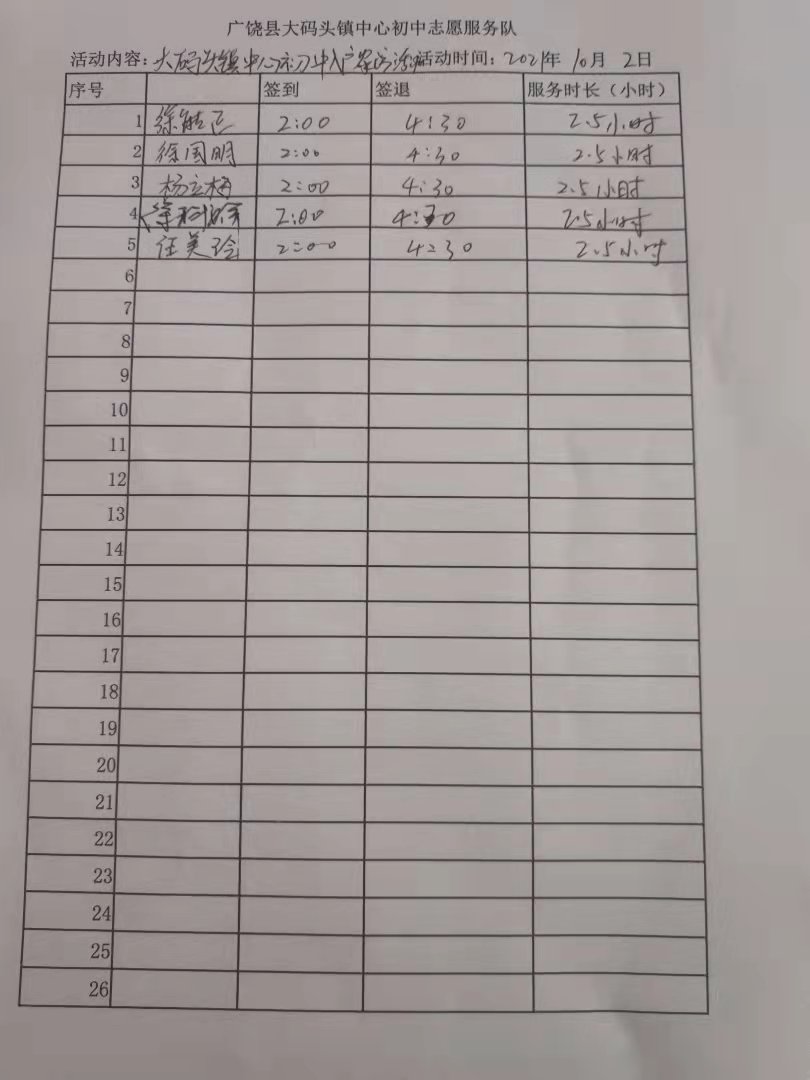 广饶县大码头镇中心初中志愿服务队
活动内容：大码头镇中心初中入户家访活动 活动时间：2021年 10月 2日
序号 签到 签退 服务时长（小时）
1 徐 2:00 4:30 2.5小时
2 徐国明 2:00 4:30 2.5小时
3 杨立梅 2:00 4:30 2.5小时
4 2:00 4:30 2.5小时
5 任美玲 2:00 4:30 2.5小时
6
7
8
9
10
11
12
13
14
15
16
17
18
19
20
21
22
23
24
25
26